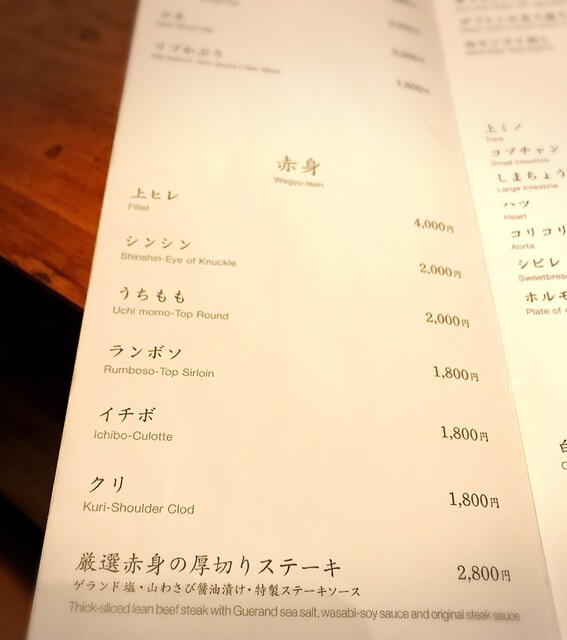 リブかぶり
1,800円
赤身
Wagyu-lean
上ヒレ
Fillet
4,000円
シンシン
Shinshin-Eye of Knuckle
2,000円
うちもも
Uchi momo-Top Round
2,000円
ランボソ
Rumboso-Top Sirloin
1,800円
イチボ
Ichibo-Culotte
1,800円
クリ
Kuri-Shoulder Clod
1,800円
厳選赤身の厚切りステーキ
2,800円
ゲランド塩・山わさび醤油漬け・特製ステーキソース
Thick-sliced lean beef steak with Guerand sea salt, wasabi-soy sauce and original steak sauce
上ミノ
Tripe
コプチャン
Small intestine
しまちょう
Large Intestine
ハツ
Heart
コリコリ
Aorta
シビレ
Sweetbrea
ホルモ
Plate of